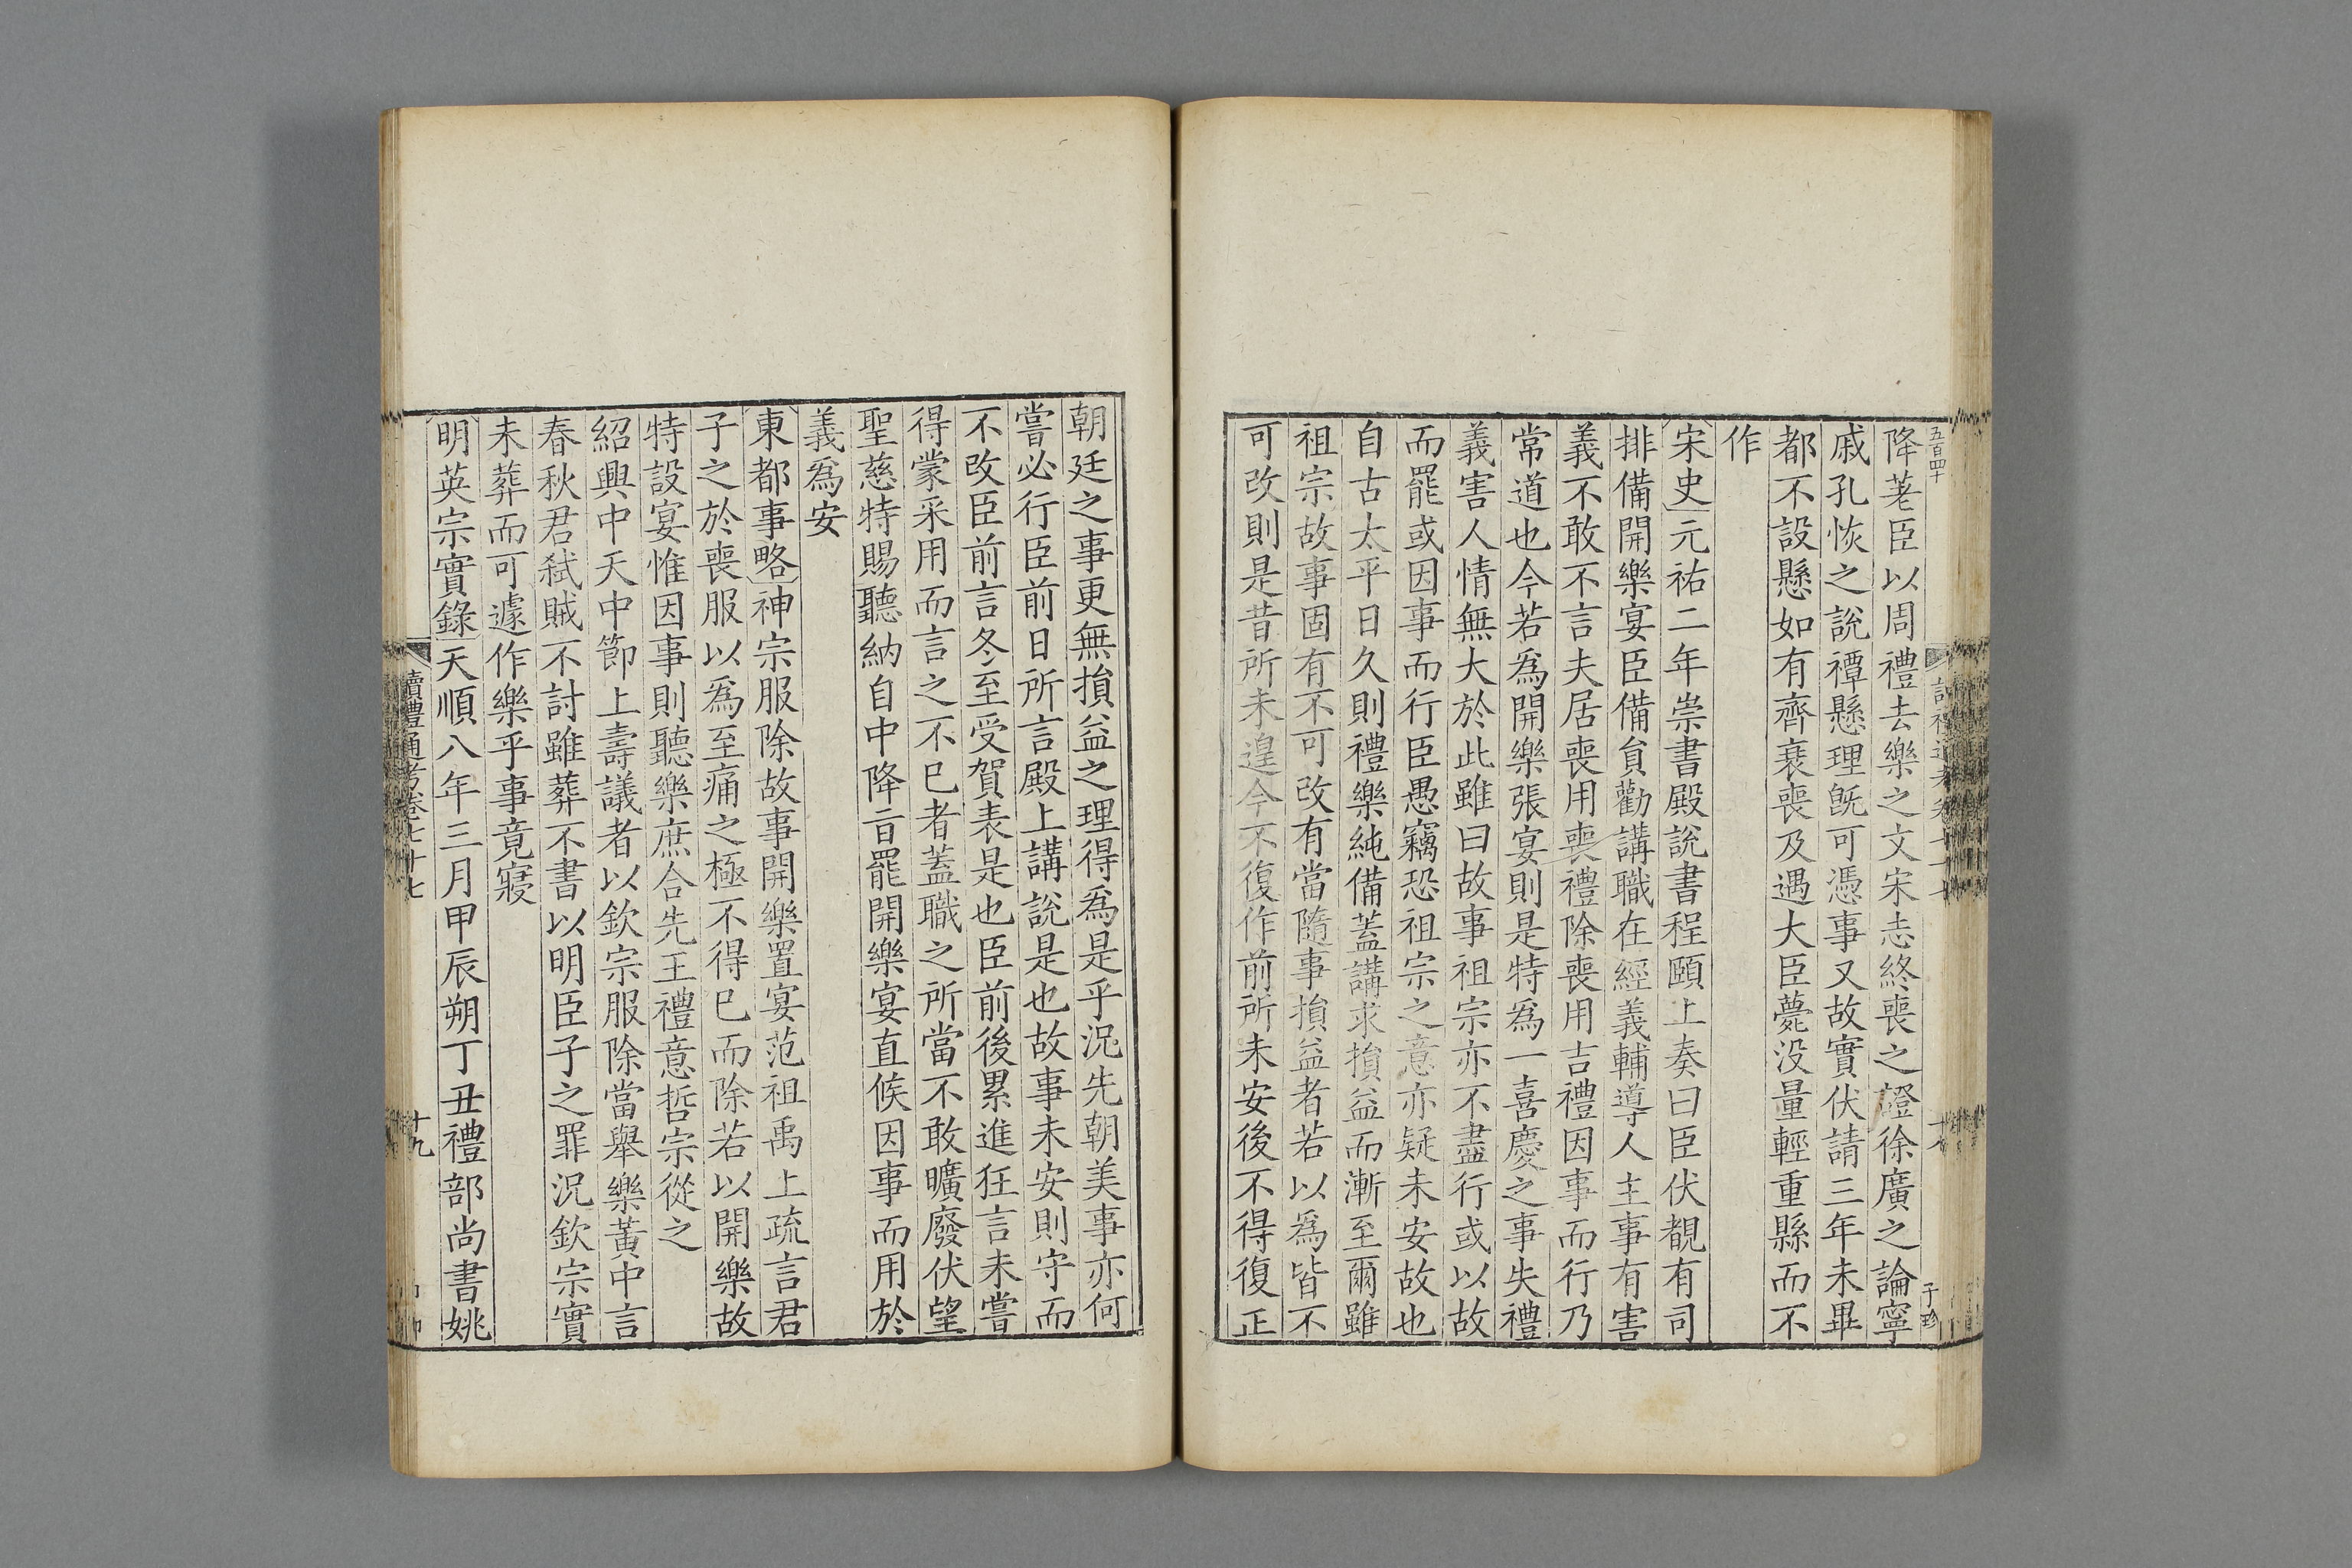 五百四十
降葊臣以周禮去樂之文宋志終喪之證徐廣之論寧
戚孔恢之說禫懸理旣可憑事又故實伏請三年未畢
都不設懸如有齊衰喪及遇大臣薨没量輕重縣而不
作
宋史元祐二年崇書殿說書程頤上奏曰臣伏覩有司
排備開樂宴臣備員勸講職在經義輔導人主事有害
義不敢不言夫居喪用喪禮除喪用吉禮因事而行乃
常道也今若爲開樂張宴則是特爲一喜慶之事失禮
義害人情無大於此雖曰故事祖宗亦不盡行或以故
而罷或因事而行臣愚竊恐祖宗之意亦疑未安故也
自古太平日久則禮樂純備蓋講求損益而漸至爾雖
祖宗故事固有不可改有當隨事損益者若以爲皆不
可改則是昔所未遑今不復作前所未安後不得復正
朝廷之事更無損益之理得爲是乎況先朝美事亦何
嘗必行臣前日所言殿上講說是也故事未安則守而
不改臣前言冬至受賀表是也臣前後累進狂言未嘗
得蒙采用而言之不已者蓋職之所當不敢曠廢伏望
聖慈特賜聽納自中降旨罷開樂宴直候因事而用於
義爲安
東都事略神宗服除故事開樂置宴范祖禹上疏言君
子之於喪服以爲至痛之極不得已而除若以開樂故
特設宴惟因事則聽樂庶合先王禮意哲宗從之
紹興中天中節上壽議者以欽宗服除當舉樂黃中言
春秋君弑賊不討雖葬不書以明臣子之罪況欽宗實
未葬而可遽作樂乎事竟寢
明英宗實錄天順八年三月甲辰朔丁丑禮部尚書姚
讀禮通考卷七十七
十九